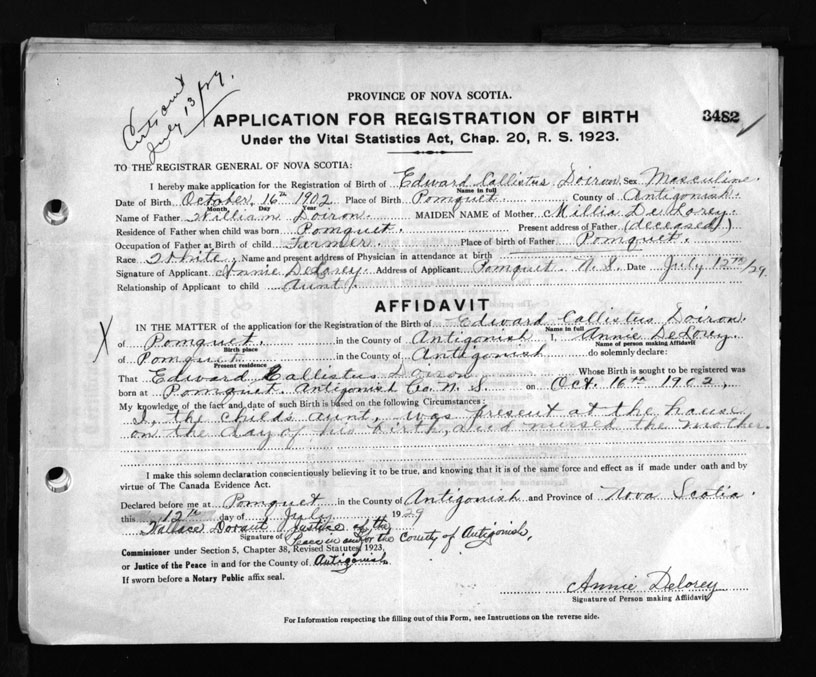 Cert sent
July 13/29.
PROVINCE OF NOVA SCOTIA.
APPLICATION FOR REGISTRATION OF BIRTH
3482
Under the Vital Statistics Act, Chap. 20, R. S. 1923.
TO THE REGISTRAR GENERAL OF NOVA SCOTIA:
I hereby make application for the Registration of Birth of Edward Callistus Doiron Sex Masculine
Name in full
Date of Birth October, 16th 1902 Place of Birth Pomquet. County of Antigonish.
Month Day Year
Name of Father William Doiron. MAIDEN NAME of Mother Millia DeLorey.
Residence of Father when child was born Pomquet. Present address of Father (deceased)
Occupation of Father at Birth of child Farmer. Place of birth of Father Pomquet.
Race White Name and present address of Physician in attendance at birth
Signature of Applicant Annie DeLorey Address of Applicant Pomquet N.S. Date July 12th/29.
Relationship of Applicant to child aunt
AFFIDAVIT
IN THE MATTER of the application for the Registration of the Birth of Edward Callistus Doiron.
Name in full
X of Pomquet. in the County of Antigonish I, Annie DeLorey.
Birth place Name of person making Affidavit
of Pomquet in the County of Antigonish do solemnly declare:
Present residence
That Edward Callistus Doiron Whose Birth is sought to be registered was
born at Pomquet Antigonish Co. N. S. on Oct. 16th 1902.
My knowledge of the fact and date of such Birth is based on the following Circumstances:
I, the childs aunt, was present at the house
on the day of his birth, and nursed the mother.
I make this solemn declaration conscientiously believing it to be true, and knowing that it is of the same force and effect as if made under oath and by
virtue of The Canada Evidence Act.
Declared before me at Pomquet in the County of Antigonish and Province of Nova Scotia
this 12th day of July 1929
Wallace Justice of the
Signature of Peace in and for the County of Antigonish.
Commissioner under Section 5, Chapter 38, Revised Statutes, 1923,
or Justice of the Peace in and for the County of Antigonish
If sworn before a Notary Public affix seal.
Annie Delorey
Signature of Person making Affidavit
For Information respecting the filling out of this Form, see Instructions on the reverse side.